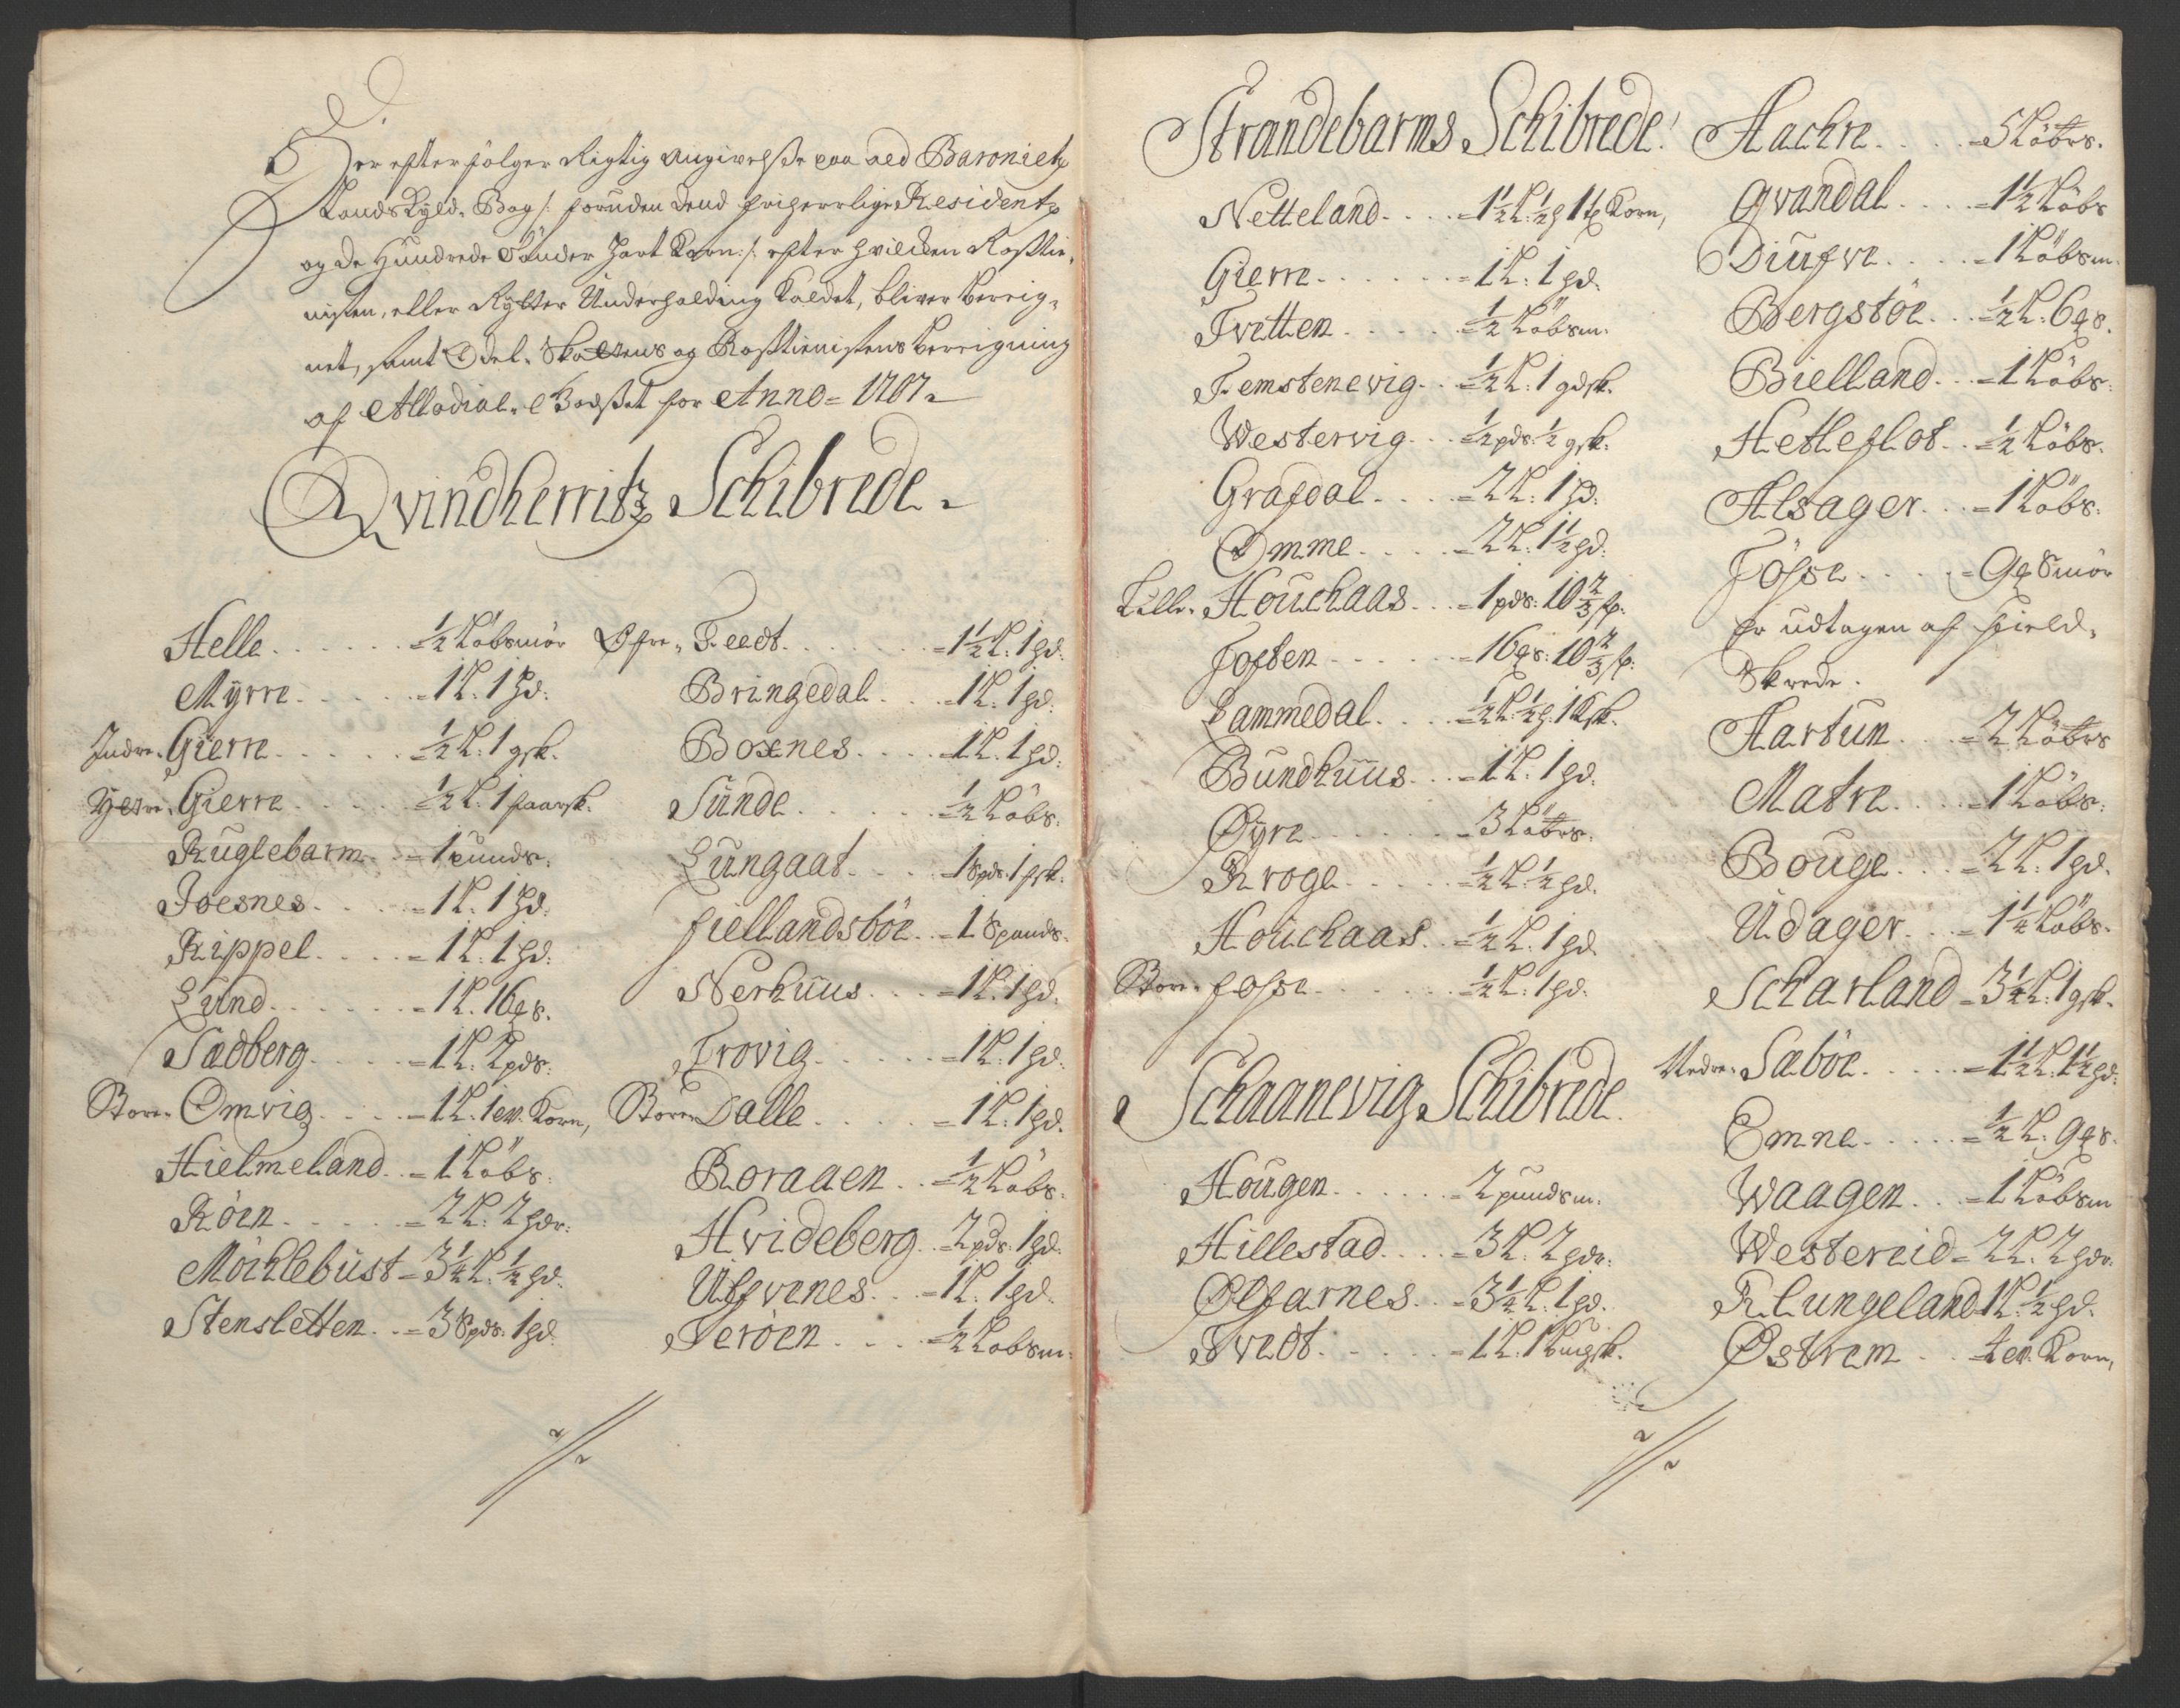 Her efterfölger Rigtig Angivelsse paa ald Baronietz
Landskyld. Bog /: foruden dend friherrlige Residentz
og de Hundrede Tünder Hart Korn :/ efter hvilcken Rosstie-
nisten, eller Rytter Underholding kaldet, bliver bereig-
net, samt Odel. Skattens og Rosstienistens bereigning
af Allodial. Godsset for Anno = 1707
Qvindherritz Schibrede
Helle . . . . . = ½ Löbsmör
Myrre . . . . = 1 L: 1 hd:
Indre. Gierre . . . . . = ½ L: 1 gsk.
Yttre. Gierre . . . . . = ½ L: 1 faarsk.
Ruglebarm . . = 1 punds.
Joesnes . . . . = 1 L: 1 hd:
Rippel . . . . = 1 L: 1 hd:
Lund . . . . . = 1 L. 16 ꝑs.
Sædberg . . . . = 1 L. 2 pds:
Store. Omvig . . . . = 1 L. 1 en. Korn,
Hielmeland . . = 1 Löbs.
Röen . . . . . = 2 L: 2 hdr:
Möchlebust = 3¼ L. ½ hd.
Stensletten . . = 3 Spds: 1 hd.
Øfre. Teedt . . . . . . = 1½ L: 1 hd.
Bringedal . . . = 1 L. 1 hd.
Boxnes . . . . = 1 L. 1 hd:
Sunde . . . . . = ½ Löbs.
Lungaat . . . . = 1 Spd. 1 gsk.
Fiellandsböe . . = 1 Spands.
Nerhuus . . . = 1 L. 1 hd.
Trovig . . . . . = 1 L. 1 hd.
Store Dalle . . . . = 1 L: 1 hd.
Boraaen . . = ½ Löbs.
Hvideberg . . 2 pds. 1 hd.
Utfvenes . . . = 1 L. 1 hd.
Teröen . . . = ½ Löbsm:
Strandebarms Schibrede
Netteland . . . = 1½ L. ½ h 1 t Korn,
Gierre . . . . . . = 1 L. 1 hd.
Tvetten . . . . = ½ Löbsm.
Femstenevig . . = ½ L: 1 gdsk.
Westervig . . . = ½ pds. ½ gsk.
Grafdal . . . . = 2 L. 1 hd.
Omme . . . . = 2 L: 1½ hd:
Lille. Houchaas . . . = 1 pds. 10⅔ sk:
Tosten . . . . . = 16 ꝑs: 10⅔ sk:
Lammedal . . . = ½ L. ½ h. 1 sk.
Bundhuus . . . = 1 L. 1 hd.
Øyre . . . . . . = 3 Löbrs.
Kroge . . . . . = ½ L. ½ hd.
Houchaas . . = ½ L. 1 hd.
Store. Fosse . . . . . . = ½ L. 1 hd.
Schaanevig Schibrede.
Hougen . . . . . = 2 pundsm.
Hillestad . . . . = 3 L. 2 hdr:
Ølfarnes . . = 3¼ L. 1 hd.
Tvedt . . . . . . = 1 L. 1 sk.
Aachre . . . . = 5 Löbrs.
Qvandal . . . . = 1½ Löbs
Diufve . . . . = 1 Löbsm.
Bergstöe . . = ½ L. 6 ꝑs.
Bielland . . = 1 Löbs.
Hetleflot . . = ½ Löbs.
Alsager . . . = 1 Löbs.
Fösse . . . . = 9 ꝑ Smör
Er udtagen af Field.
Skrede.
Aartun . . . = 2 Löbrs
Matre . . . . = 1 Löbs.
Bouge . . . = 2 L. 1 hd.
Udager . . . = 1¼ Löbs.
Scharland = 3¼ L. 1 gsk.
Nedre. Sæböe . . . . . = 1½ L. 1½ hd.
Emne . . . . . = ½ L. 9 ꝑs.
Waagen . . . = 1 Löbsm
Westereid = 2 L. 2 hdr.
Klungeland 1 L. ½ hd.
Østrem . . 4 en. Korn,